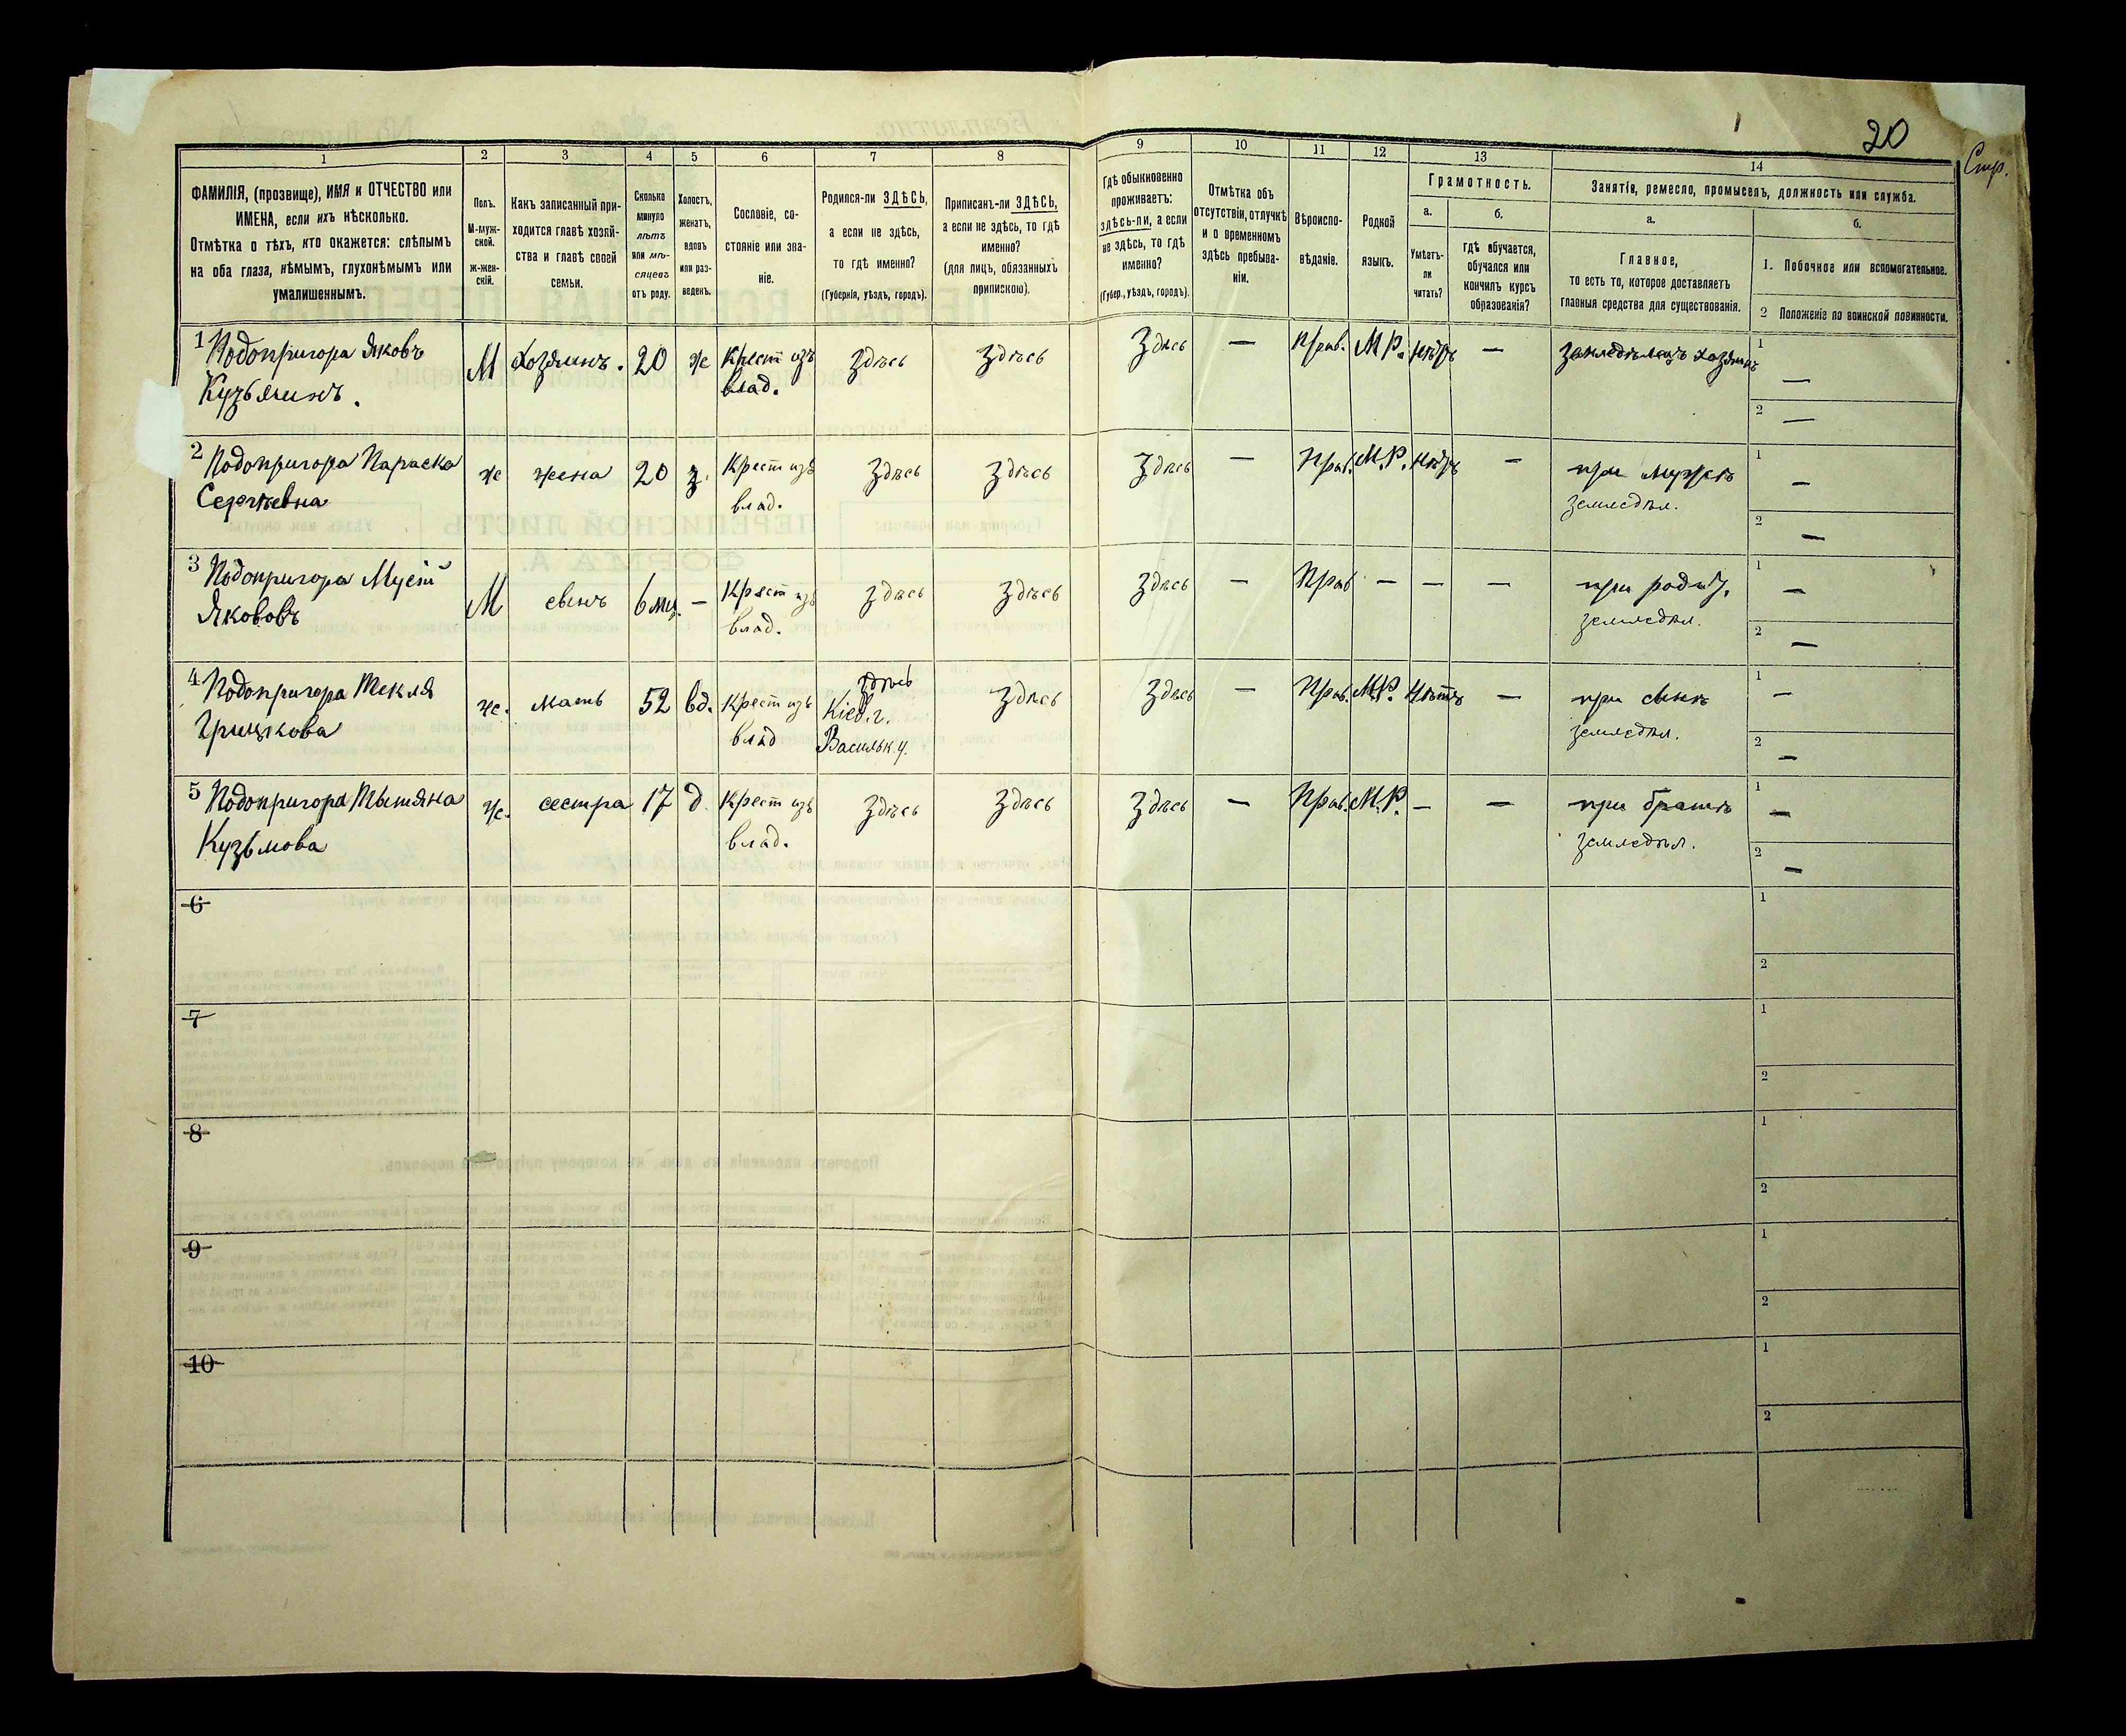 20
Стр.
1 2 3 4 5 6 7 8 9 10 11 12 13 14
ФАМИЛІЯ, (прозвище), ИМЯ и ОТЧЕСТВО или
ИМЕНА, если ихъ нѣсколько.
Отмѣтка о тѣхъ, кто окажется: слѣпымъ
на оба глаза, нѣмымъ, глухонѣмымъ или
умалишеннымъ.
Полъ.
М-муж-
ской.
ж-жен-
скій.
Какъ записанный при-
ходится главѣ хозяй-
ства и главѣ своей
семьи.
Сколько
минуло
лѣтъ
или мѣ-
сяцевъ
отъ роду.
Холостъ,
женатъ,
вдовъ
или раз-
веденъ.
Сословіе, со-
стояніе или зва-
ніе.
Родился-ли ЗДѢСЬ,
а если не здѣсь,
то гдѣ именно?
(Губернія, уѣздъ, городъ).
Приписанъ-ли ЗДѢСЬ,
а если не здѣсь, то гдѣ
именно?
(для лицъ, обязанныхъ
припискою).
Гдѣ обыкновенно
проживаетъ:
здѣсь-ли, а если
не здѣсь, то гдѣ
именно?
(Губер., уѣздъ, городъ).
Отмѣтка объ
отсутствіи, отлучкѣ
и о временномъ
здѣсь пребыва-
ніи.
Вѣроиспо-
вѣданіе.
Родной
языкъ.
Грамотность.
а.
Умѣетъ-
ли
читать?
б.
гдѣ обучается,
обучался или
кончилъ курсъ
образованія?
Занятіе, ремесло, промыселъ, должность или служба.
а.
Главное,
то есть то, которое доставляетъ
главныя средства для существованія.
б.
1. Побочное или вспомогательное.
2 Положеніе по воинской повинности.
1 Подопригора Яковъ М Хозяинъ. 20 ж Крест изъ здѣсь Здѣсь Здѣсь — Прав. М.Р. нѣтъ — земледѣлецъ хозяинъ 1 —
Кузьминъ. влад. 2 —
2 Подопригора Параска ж жена 20 з. Крест изъ Здѣсь Здѣсь Здѣсь — Прав. М.Р. нѣтъ — при мужѣ 1 —
Сергѣевна влад. земледѣл. 2 —
3 Подопригора Мусій М сынъ 6 мц. — Крест изъ здѣсь Здѣсь Здѣсь — Прав — — — при родит. 1 —
Якововъ влад. земледѣл. 2 —
4 Подопригора Текля ж. мать 52 вд. Крест изъ здѣсь Здѣсь Здѣсь — Прав. М.Р. Нѣтъ — при сынѣ 1 —
Грицкова влад Кіев.г. земледѣл. 2 —
Васильк.у.
5 Подопригора Тытяна ж. сестра 17 д. Крест изъ Здѣсь Здѣсь Здѣсь — Прав. М.Р. — — при братѣ 1 —
Кузьмова влад. земледѣл. 2 —
6 1
2
7 1
2
8 1
2
9 1
2
10 1
2